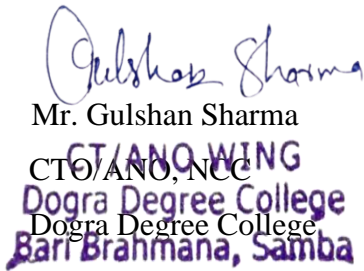 Gulshan Sharma
Mr. Gulshan Sharma
CT/ANO WING
CTO/ANO, NCC
Dogra Degree College
Dogra Degree College
Bari Brahmana, Samba